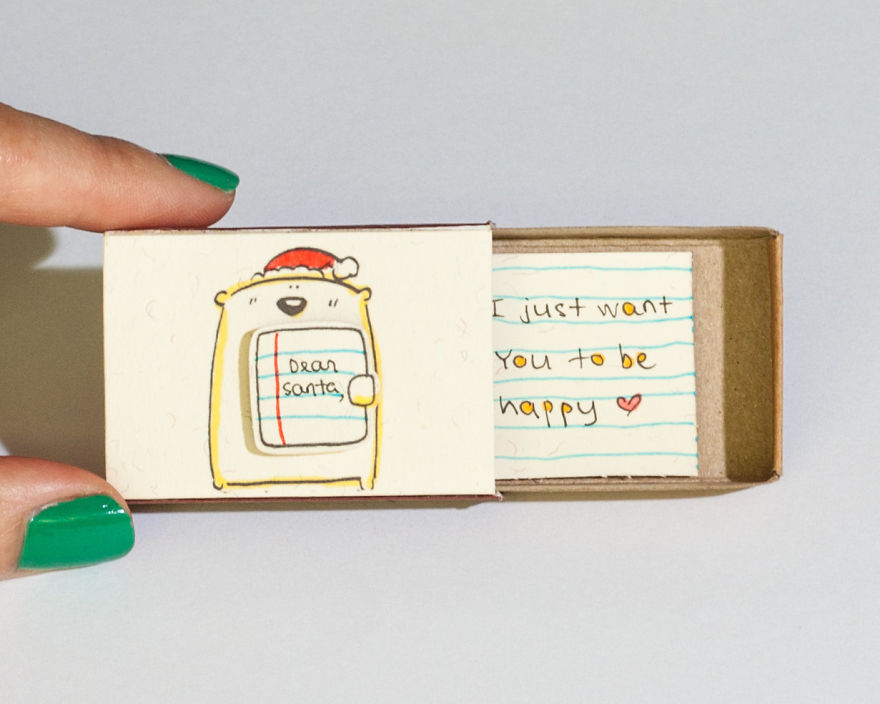 Dear
santa,
I just want
You to be
happy